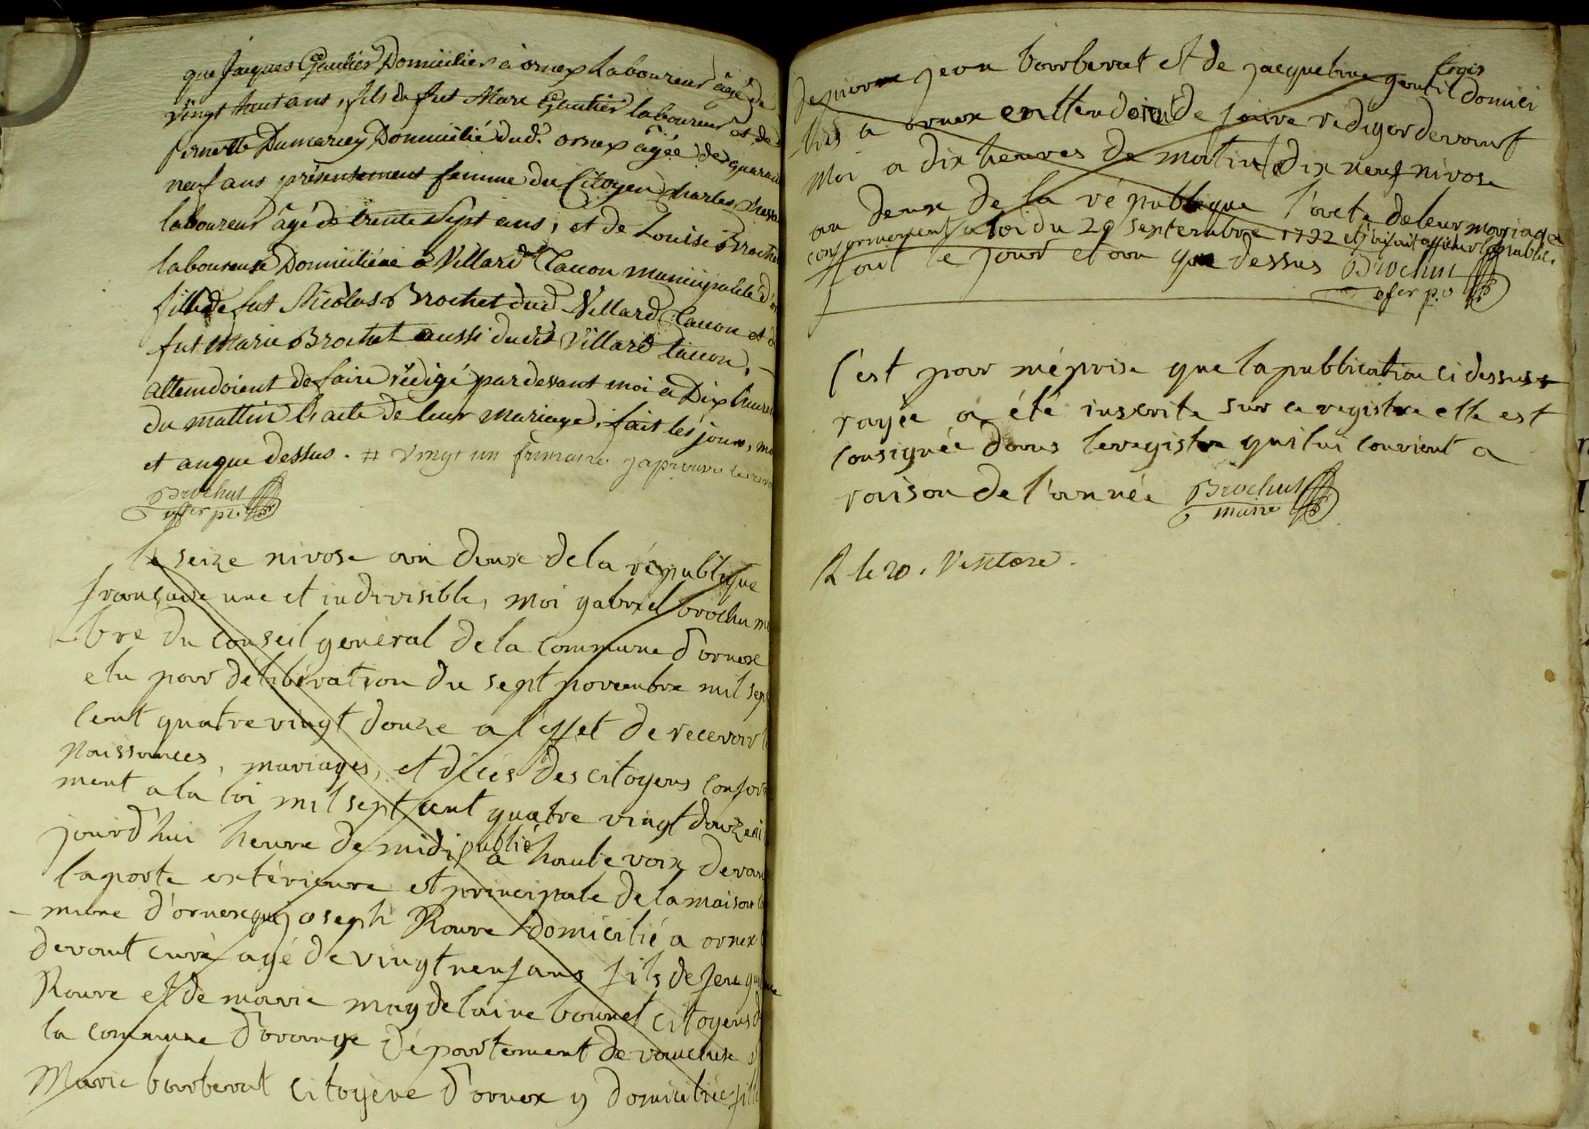 que jacques Gautier Domicilier a ornex laboureur agé de
vingt huit ans, fils du fut Marc Gautier laboureur et de
pernette Dumarcey Domicilié dud. ornex âgée de quarante
neuf ans présentement femme du Citoyen charles
laboureur âgé de trente sept ans, et de Louise Brochet
laboureuse Domiciliéé a Villard Tacon municipalité d'or
fille de fut Nicolas Brochet dud Villard Tacon et de
fut Marie Brochet aussi dudit Villard Tacon,
attendoient de faire rédigé par devant moi a Dix heures
du mattin l'acte de leur mariage, fait les jour, moi
et an que dessus. # vingt un frimaire j'aprouve le renvoi
Brochut
ofier p.o
le seize nivose an deux de la république
française une et indivisible, moi gabriel brochu mem
bre du conseil général de la commune d'ornex
elu par deliberation du sept novembre mil sept
cent quatre vingt douze a l'effet de recevoir les
naissances, mariages, et décès des citoyens conformé
ment a la loi mil sept cent quatre vingt douze ai
jourd'hui heure de midi publié a haute voix devant
la porte extérieure et principale de la maison com
mune d'ornex que joseph Rouvre domicilié a ornex ci
devant curé agé de vingt neuf ans fils de feu
Rouvre et de marie magdelaine bonnet citoyens de
la commune d'orange département de vaucluse et
Marie barberat citoyène d'ornex y domiciliée fille
de pierre jean barberat et de jacqueline gentil logis domici
liés a ornex entendoient de faire rédiger devant
moi a dix heures de matin dix neuf nivose
an deux de la république l'acte de leur mariage
conformement a loi du 20 septembre 1792 et j'ai fait afficher la public.
fait le jour et an que dessus Brochut
ofier p.o
C'est par méprise que la publication ci dessus
rayée a été inscrite sur ce registre elle est
consignée dans le registre qui lui convient a
raison de l'année Brochut
maire
R le 20. Ventose.